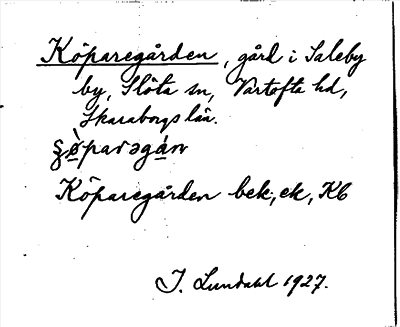 Köparegården, gård i Saleby
by, Slöta sn, Vartofta hd,
Skaraborgs län.
Köparegården bek, ek, Kb
I. Lundahl 1927.